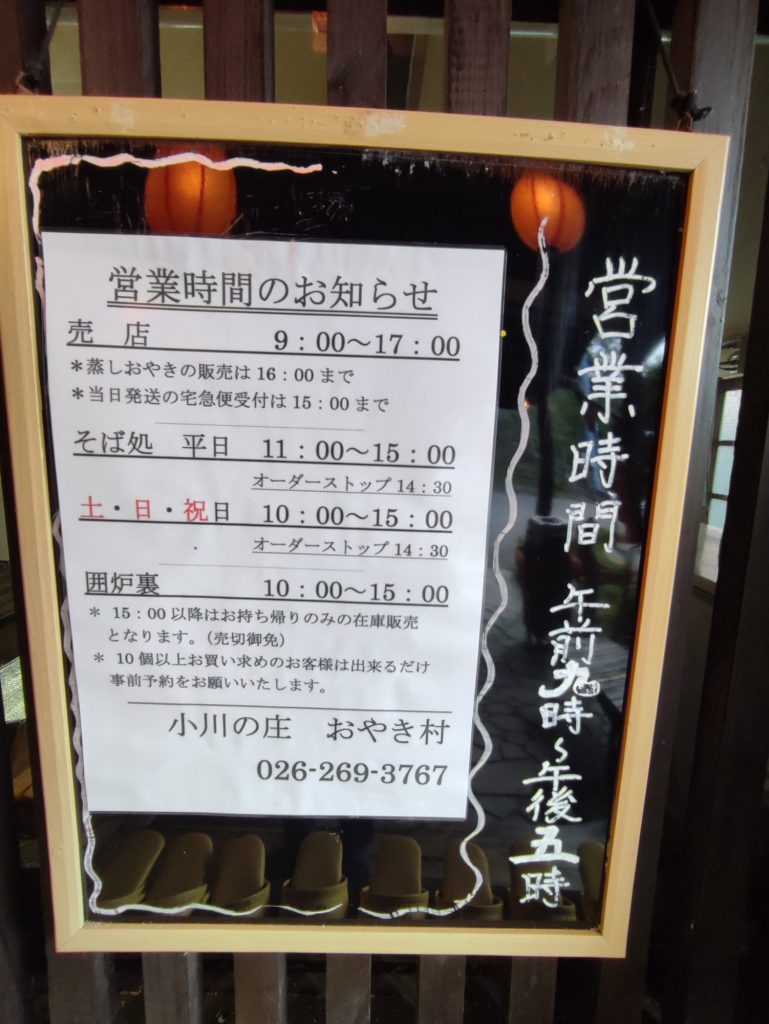 営業時間のお知らせ
売　店　9：00～17：00
＊蒸しおやきの販売は16：00まで
＊当日発送の宅急便受付は15：00まで
そば処　平日　11：00～15：00
オーダーストップ14：30
土・日・祝日　10：00～15：00
オーダーストップ14：30
囲炉裏　10：00～15：00
＊ 15：00以降はお持ち帰りのみの在庫販売
となります。（売切御免）
＊ 10個以上お買い求めのお客様は出来るだけ
事前予約をお願いいたします。
小川の庄　おやき村
026-269-3767
営業時間
午前九時～午後五時